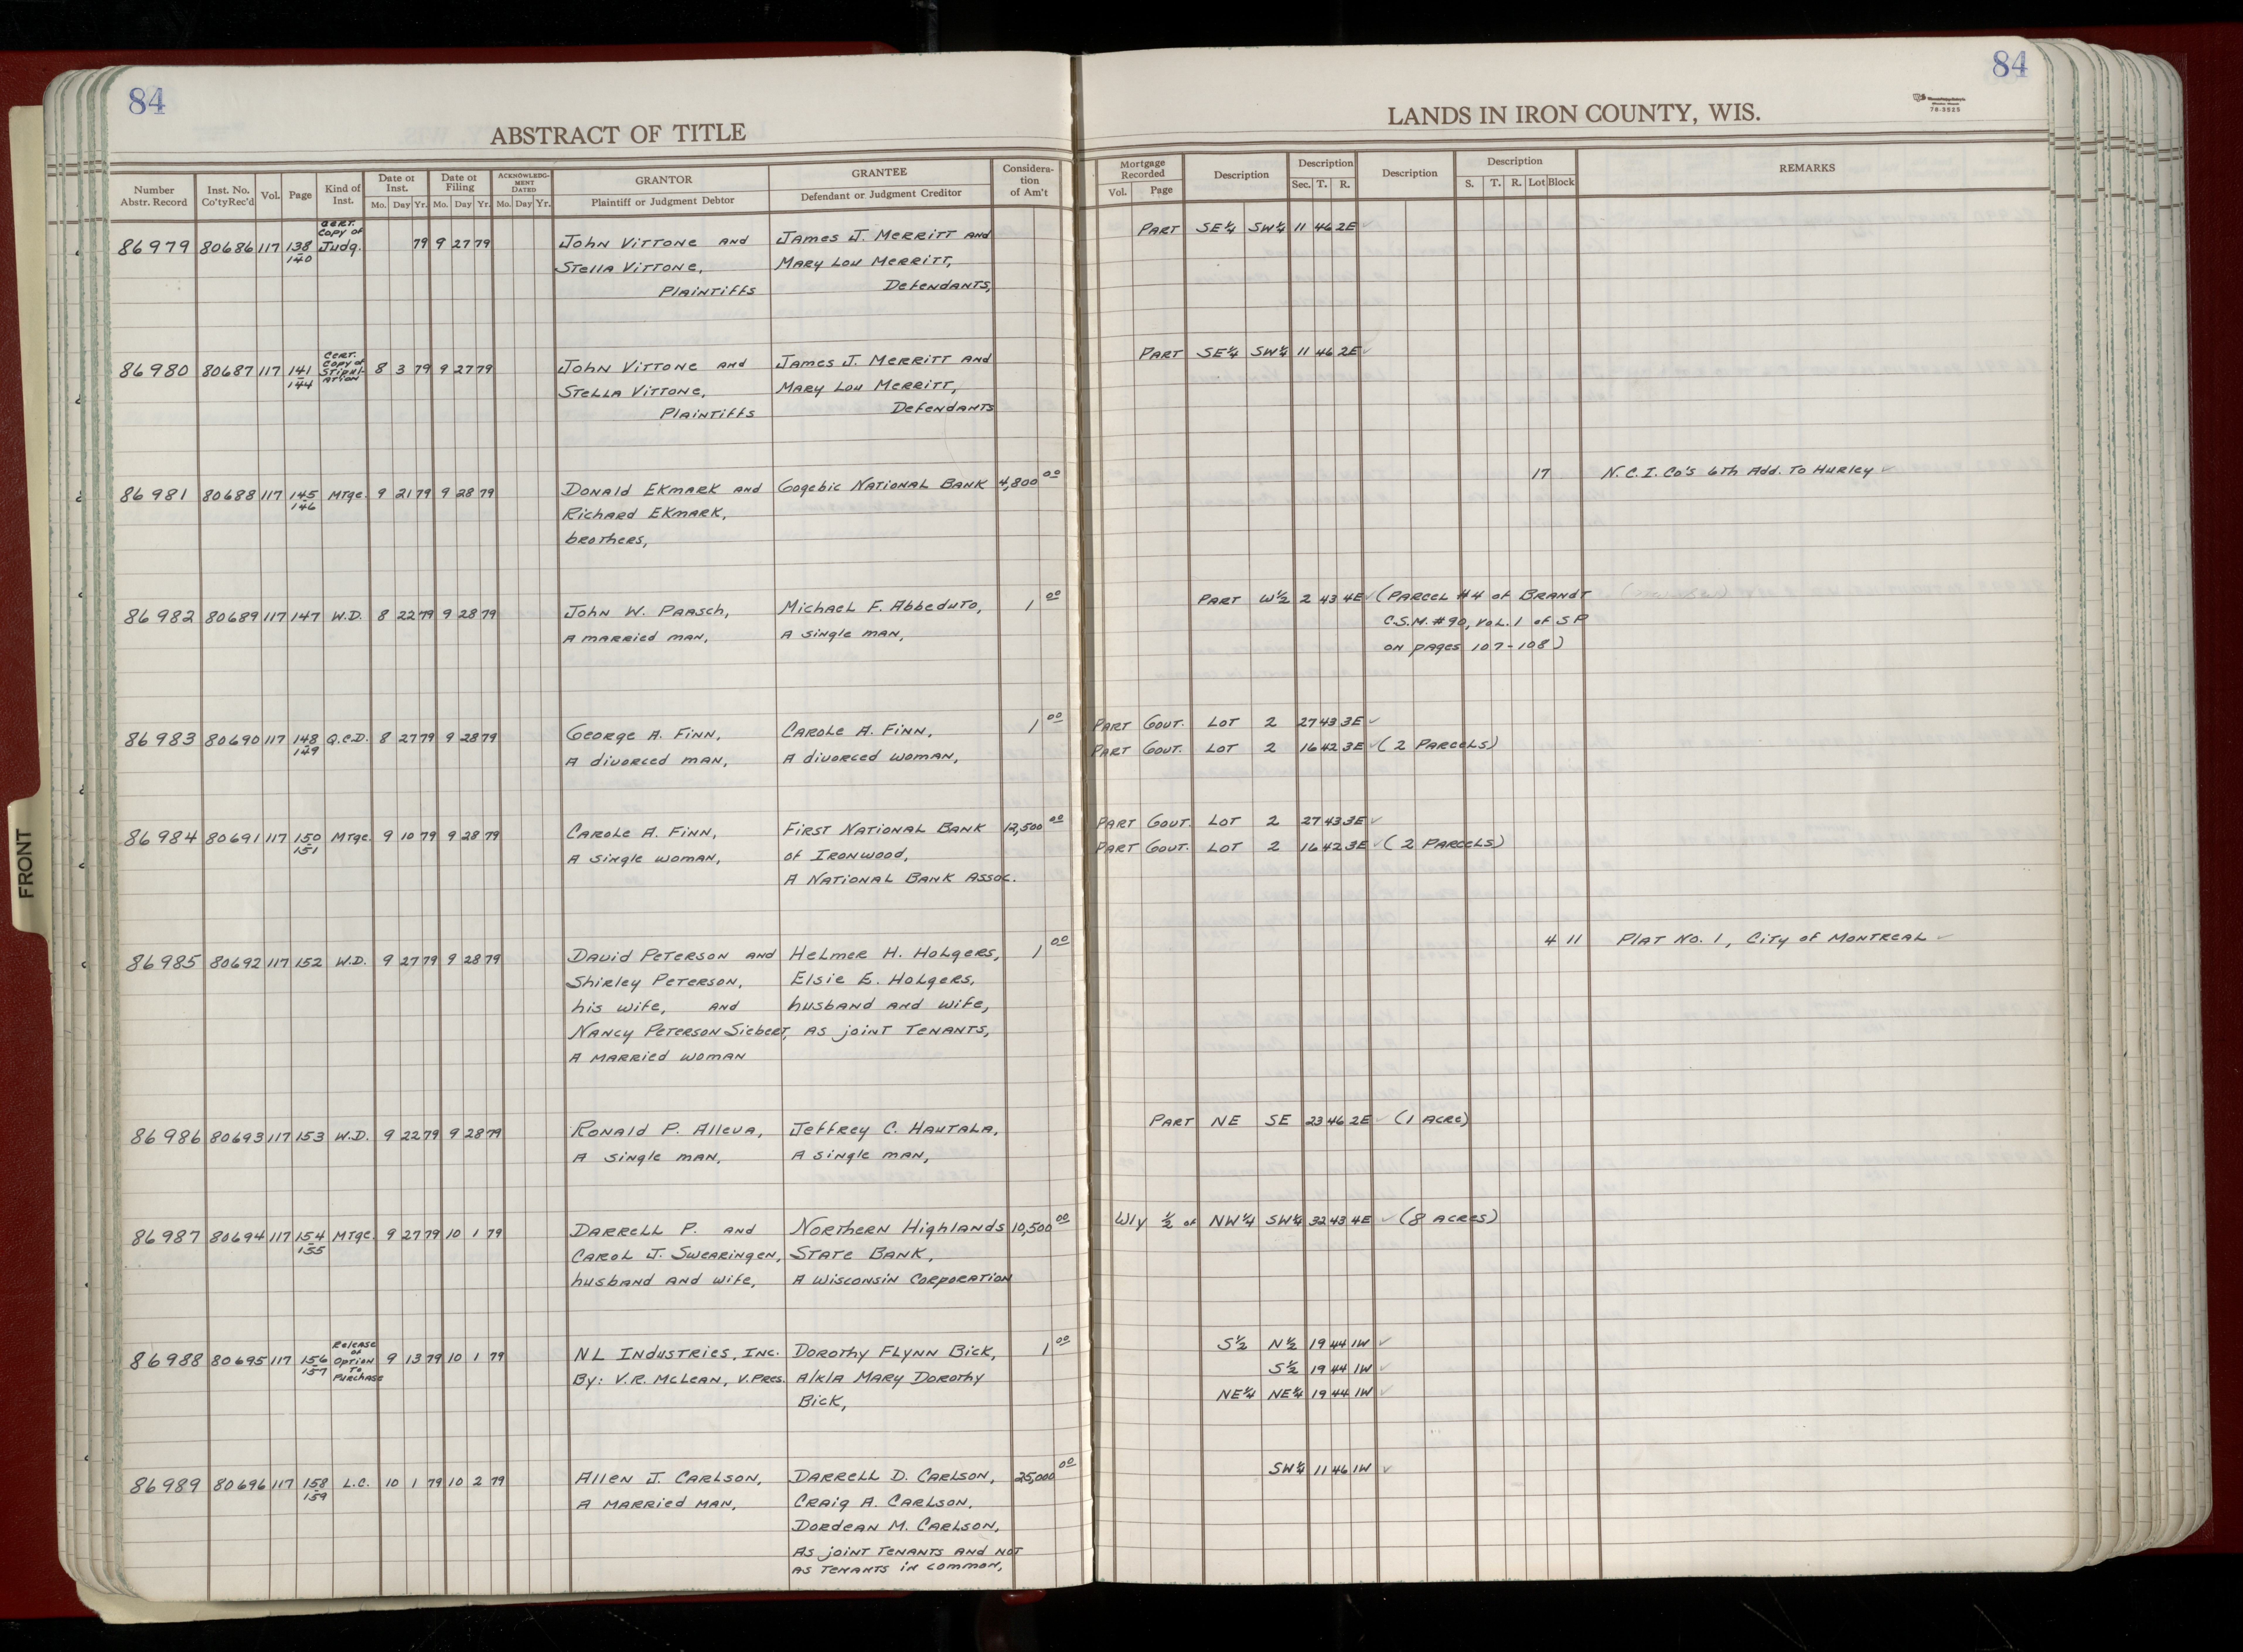 84
ABSTRACT OF TITLE
84
LANDS IN IRON COUNTY, WIS.
78-3525
Number Abstr. Record Inst. No. Co'ty Rec'd Vol. Page Kind of Inst. Date of Inst. Mo. Day Yr. Date of Filing Mo. Day Yr. ACKNOWLEDG-MENT DATED Mo. Day Yr. GRANTOR Plaintiff or Judgment Debtor GRANTEE Defendant or Judgment Creditor Considera-tion of Am't Mortgage Recorded Vol. Page Description Description Sec. T. R. Description Description S. T. R. Lot Block REMARKS
86979 80686 117 138-140 Cert. Copy of Judg. 79 9 27 79 John Vittone and James J. Merritt and Part SE¼ SW¼ 11 46 2E ✓
Stella Vittone, Mary Lou Merritt,
Plaintiffs Defendants,
86980 80687 117 141-144 Cert. Copy of Stipul-ation 8 3 79 9 27 79 John Vittone and James J. Merritt and Part SE¼ SW¼ 11 46 2E ✓
Stella Vittone, Mary Lou Merritt,
Plaintiffs Defendants
86981 80688 117 145-146 Mtge. 9 21 79 9 28 79 Donald Ekmark and Gogebic National Bank 4,800 00 17 N.C.I. Co's 6th Add. To Hurley ✓
Richard Ekmark,
brothers,
86982 80689 117 147 W.D. 8 22 79 9 28 79 John W. Paasch, Michael F. Abbeduto, 1 00 Part W½ 2 43 4E ✓ (Parcel #4 of Brandt
A married man, A single man, C.S.M. #90, Vol. 1 of SP
on pages 107-108)
86983 80690 117 148-149 Q.C.D. 8 27 79 9 28 79 George A. Finn, Carole A. Finn, 1 00 Part Gout. Lot 2 27 43 3E ✓
A divorced man, A divorced woman, Part Gout. Lot 2 16 42 3E ✓ (2 Parcels)
86984 80691 117 150-151 Mtge. 9 10 79 9 28 79 Carole A. Finn, First National Bank 12,500 00 Part Gout. Lot 2 27 43 3E ✓
A single woman, of Ironwood, Part Gout. Lot 2 16 42 3E ✓ (2 Parcels)
A National Bank Assoc.
86985 80692 117 152 W.D. 9 27 79 9 28 79 David Peterson and Helmer H. Holgers, 1 00 4 11 Plat No. 1, City of Montreal ✓
Shirley Peterson, Elsie E. Holgers,
his wife, and husband and wife,
Nancy Peterson Siebert, as joint tenants,
A married woman
86986 80693 117 153 W.D. 9 22 79 9 28 79 Ronald P. Alleva, Jeffrey C. Hautala, Part NE SE 23 46 2E ✓ (1 Acre)
A single man, A single man,
86987 80694 117 154-155 Mtge. 9 27 79 10 1 79 Darrell P. and Northern Highlands 10,500 00 Wly ½ of NW¼ SW¼ 32 43 4E ✓ (8 Acres)
Carol J. Swearingen, State Bank,
husband and wife, A Wisconsin Corporation
86988 80695 117 156-157 Release of Option To Purchase 9 13 79 10 1 79 NL Industries, Inc. Dorothy Flynn Bick, 1 00 S½ N½ 19 44 1W ✓
By: V.R. McLean, V.Pres. A/k/a Mary Dorothy S½ 19 44 1W ✓
Bick, NE¼ NE¼ 19 44 1W ✓
86989 80696 117 158-159 L.C. 10 1 79 10 2 79 Allen J. Carlson, Darrell D. Carlson, 25,000 00 SW¼ 11 46 1W ✓
A married man, Craig A. Carlson,
Dordean M. Carlson,
As joint tenants and not
as tenants in common,
FRONT